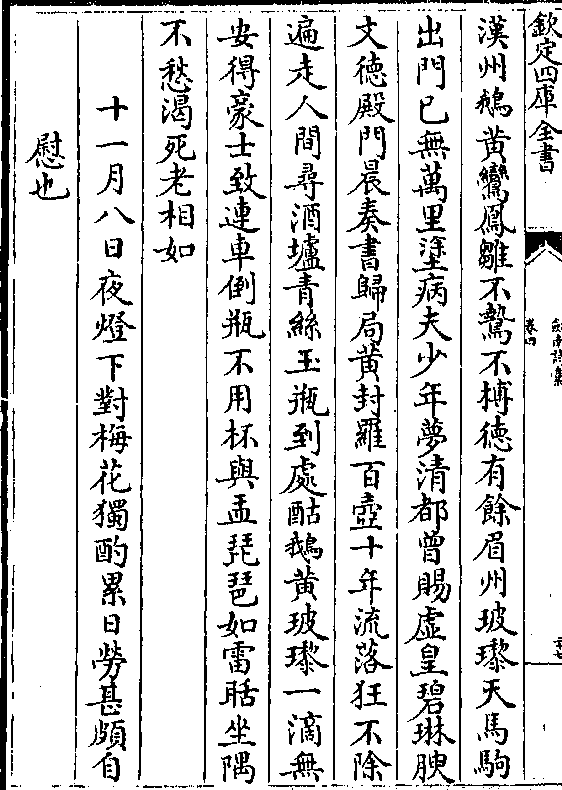 欽定四庫全書
劍南詩藁
卷四
漢州鵝黃鸞鳳雛不鷙不搏德有餘眉州玻瓈天馬駒
出門已無萬里塗病夫少年夢清都曾賜虛皇碧琳腴
文德殿門晨奏書歸局黃封羅百壺十年流落狂不除
遍走人間尋酒壚青絲玉瓶到處酤鵝黃玻瓈一滴無
安得豪士致連車倒瓶不用杯與盂琵琶如雷聒坐隅
不愁渴死老相如
十一月八日夜燈下對梅花獨酌累日勞甚頗自
慰也